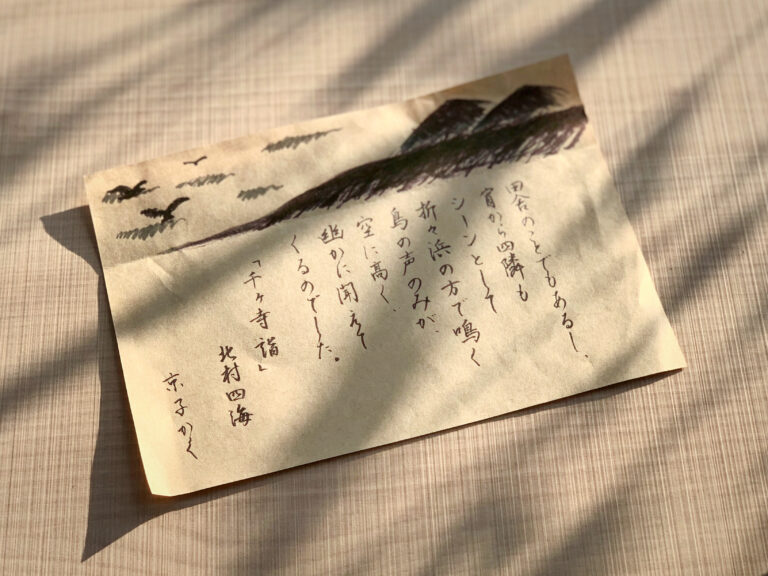 田舎のことでもあるし、
宵から四隣も
シーンとして
折々浜の方で鳴く
鳥の声のみが、
空に高く、
幽かに聞えて
くるのでした。
「千ヶ寺詣」
北村四海
京子かく